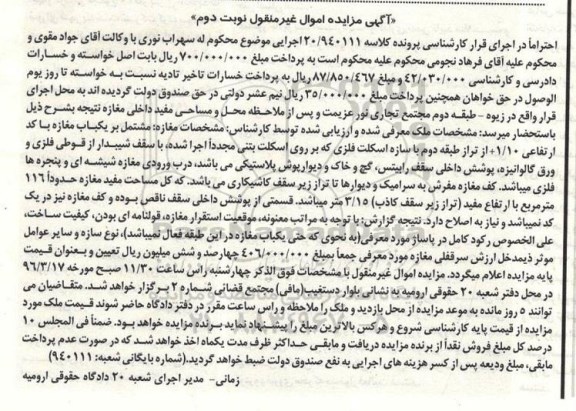 «آگهی مزایده اموال غیرمنقول نوبت دوم»
احتراماً در اجرای قرار کارشناسی پرونده کلاسه ۲۰/۹۴۰۱۱۱ اجرایی موضوع محکوم له سهراب نوری با وکالت آقای جواد مقوی و
محکوم علیه آقای فرهاد نجومی محکوم علیه محکوم است به پرداخت مبلغ ۷۰۰/۰۰۰/۰۰۰ ریال بابت اصل خواسته و خسارات
دادرسی و کارشناسی ۴۲/۰۳۰/۰۰۰ و مبلغ ۸۷/۸۵۰/۴۶۷ ریال به پرداخت خسارات تاخیر تادیه نسبت به خواسته تا روز یوم
الوصول در حق خواهان همچنین پرداخت مبلغ ۳۵/۰۰۰/۰۰۰ ریال نیم عشر دولتی در حق صندوق دولت گردیده اند به محل اجرای
قرار واقع در زیوه - طبقه دوم مجتمع تجاری نور عزیمت و پس از ملاحظه محل و مساحی مفید داخلی مغازه نتیجه بشرح ذیل
باستحضار میرسد: مشخصات ملک معرفی شده و ارزیابی شده توسط کارشناس: مشخصات مغازه: مشتمل بر یکباب مغازه با کد
ارتفاعی ۱/۱۰+ از تراز طبقه دوم با سازه اسکلت فلزی که بر روی اسکلت بتنی مجدداً اجرا شده، با سقف شیبدار از قوطی فلزی و
ورق گالوانیزه، پوشش داخلی سقف رابیتس، گچ و خاک و دیوارپوش پلاستیکی می باشد، درب ورودی مغازه شیشه ای و پنجره ها
فلزی میباشد. کف مغازه مفرش به سرامیک و دیوارها تا تراز زیر سقف کاشیکاری می باشد. که کل مساحت مفید مغازه حدوداً ۱۱۶
مترمربع با ارتفاع مفید (تراز زیر سقف کاذب) ۳/۱۵ متر میباشد. قسمتی از پوشش داخلی سقف ناقص بوده و کف مغازه نیز در یک
کد نمیباشد و نیاز به اصلاح دارد. نتیجه گزارش: با توجه به مراتب معنونه، موقعیت استقرار مغازه، قولنامه ای بودن، کیفیت ساخت،
علی الخصوص رکود کامل در پاساژ مورد معرفی (به نحوی که حتی یکباب مغازه در این طبقه فعال نمیباشد)، نوع سازه و سایر عوامل
موثر ذیمدخل ارزش سرقفلی مغازه مورد معرفی جمعاً بمبلغ ۴۰۶/۰۰۰/۰۰۰ چهارصد و شش میلیون ریال تعیین و بعنوان قیمت
پایه مزایده اعلام میگردد. مزایده اموال غیرمنقول با مشخصات فوق الذکر چهارشنبه راس ساعت ۱۱/۳۰ صبح مورخه ۹۶/۳/۱۷
در محل دفتر شعبه ۲۰ حقوقی ارومیه به نشانی بلوار دستغیب (مافی) مجتمع قضائی شماره ۲ برگزار خواهد شد. متقاضیان می
توانند ۵ روز مانده به موعد مزایده از محل بازدید و ملک را ملاحظه و راس ساعت مقرر در دفتر دادگاه حاضر شوند قیمت ملک مورد
مزایده از قیمت پایه کارشناسی شروع و هرکس بالاترین مبلغ را پیشنهاد نماید برنده مزایده خواهد بود. ضمناً فی المجلس ۱۰
درصد کل مبلغ فروش نقداً از برنده مزایده دریافت و مابقی حداکثر ظرف مدت یکماه اخذ خواهد شد که در صورت عدم پرداخت
مابقی، مبلغ ودیعه پس از کسر هزینه های اجرایی به نفع صندوق دولت ضبط خواهد گردید.(شماره بایگانی شعبه: ۹۴۰۱۱۱)
زمانی- مدیر اجرای شعبه ۲۰ دادگاه حقوقی ارومیه